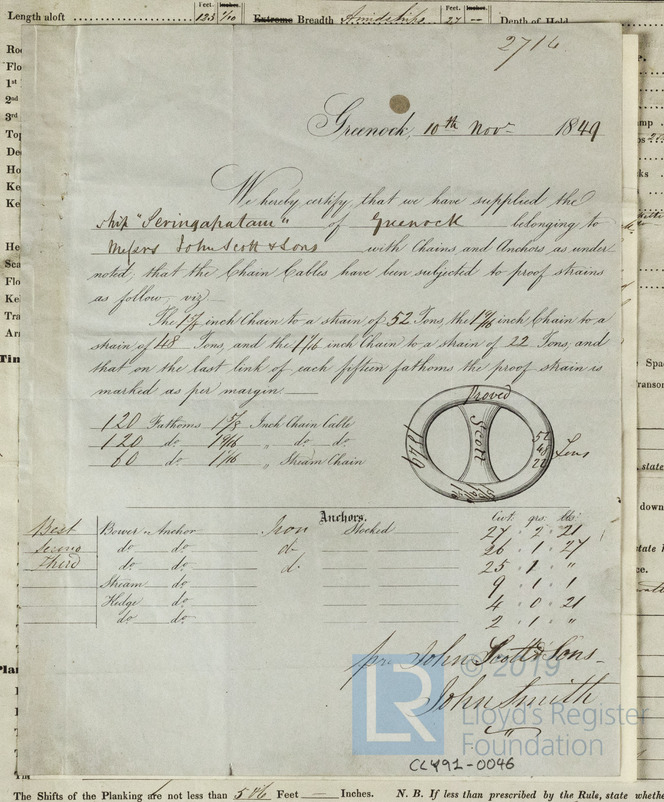 Length aloft 123 2/10 Extreme Breadth Amidships 27 — Depth of Hold
Feet. Inches. Feet. Inches.
2714
Greenock, 10th Novr 1849
We hereby certify, that we have supplied the
ship "Seringapatam" of Greenock belonging to
Messrs John Scott & Sons with Chains and Anchors as under
noted, that the Chain Cables have been subjected to proof strains
as follow, viz
The 1 5/8 inch Chain to a strain of 52 Tons, the 1 9/16 inch Chain to a
strain of 48 Tons, and the 1 1/16 inch Chain to a strain of 22 Tons, and
that on the last link of each fifteen fathoms the proof strain is
marked as per margin.
120 Fathoms 1 5/8 Inch Chain Cable
120 do 1 9/16 " do do
60 do 1 1/16 " Stream Chain
Proved
1849
Scott
52
48
22
Tons
Anchors.
Cwt. qrs. lbs.
Best Bower Anchor Iron Stocked 27 . 2 . 21
second do do do 26 . 1 . 27
third do do do 25 . 1 . "
Stream do 9 . 1 . 1
Kedge do 4 . 0 . 21
do do 2 . 1 . "
pr John Scott & Sons
John Smith
© 2019
LR
Lloyd's Register
Foundation
CLY91-0046
The Shifts of the Planking are not less than 5 ft 6 Feet — Inches. N. B. If less than prescribed by the Rule, state whethe